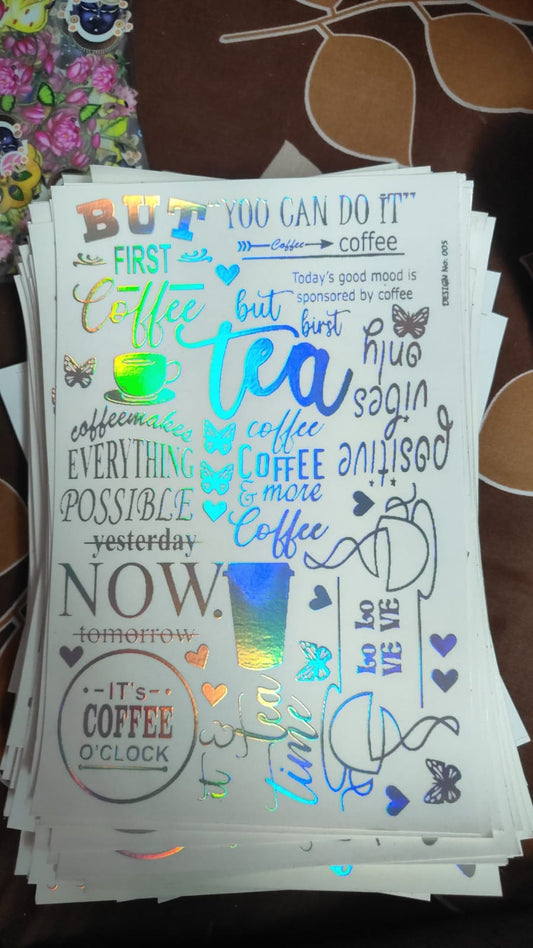 BUT
FIRST
Coffee
"YOU CAN DO IT"
Coffee
coffee
Today's good mood is
sponsored by coffee
DESIGN No: 005
but
birst
tea
positive
vibes
only
coffeemakes
EVERYTHING
POSSIBLE
coffee
COFFEE
& more
Coffee
yesterday
NOW.
tomorrow
LO LO
VE VE
IT's
COFFEE
O'CLOCK
it &
tea
time